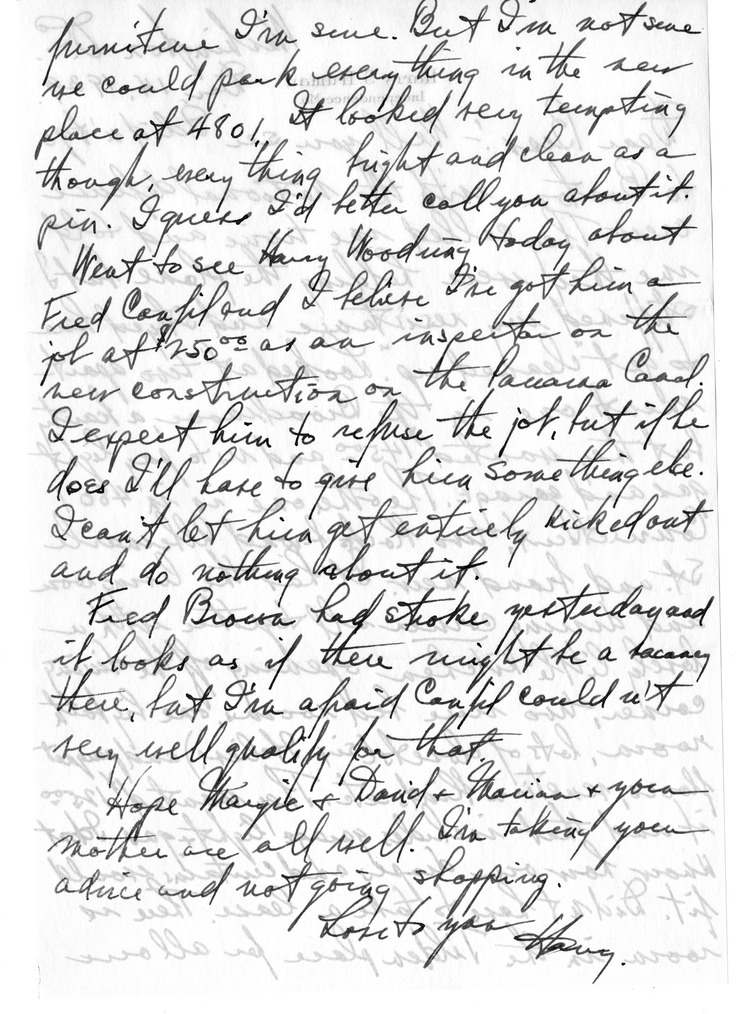 furniture I'm sure. But I'm not sure
we could park everything in the new
place at 4801. It looked very tempting
though, every thing bright and clean as a
pin. I guess I'd better call you about it.
Went to see Harry Woodring today about
Fred Canfil and I believe I've got him a
job at $250.00 as an inspector on the
new construction on the Panama Canal.
I expect him to refuse the job, but if he
does I'll have to give him something else.
I can't let him get entirely kicked out
and do nothing about it.
Fred Brown had stroke yesterday and
it looks as if there might be a vacancy
there, but I'm afraid Canfil couldn't
very well qualify for that.
Hope Margie & David & Marian & your
mother are all well. I'm taking your
advice and not going shopping.
Love to you Harry.